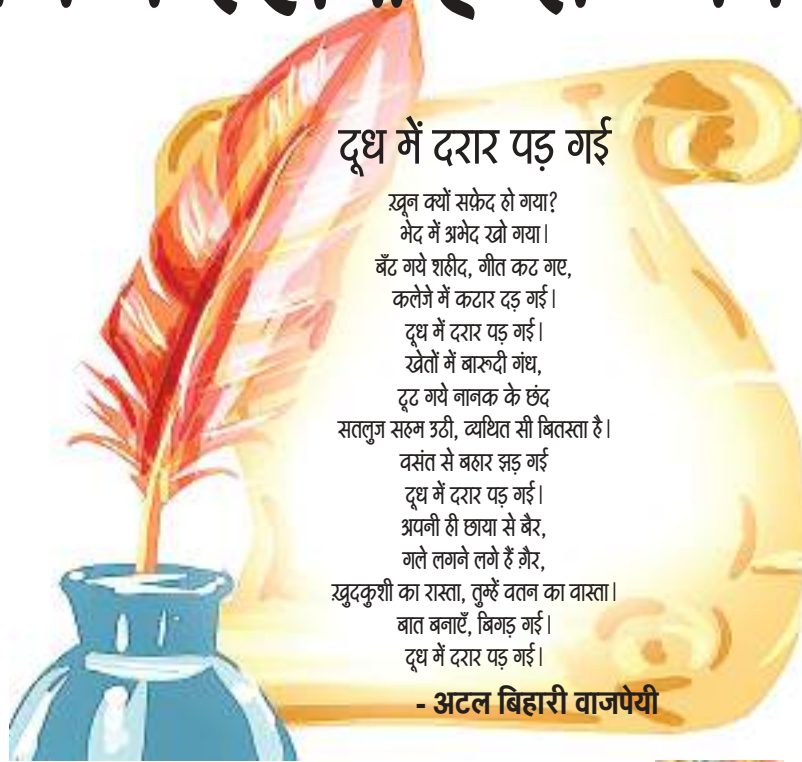 दूध में दरार पड़ गई
ख़ून क्यों सफ़ेद हो गया?
भेद में अभेद खो गया।
बँट गये शहीद, गीत कट गए,
कलेजे में कटार दड़ गई।
दूध में दरार पड़ गई।
खेतों में बारूदी गंध,
टूट गये नानक के छंद
सतलुज सहम उठी, व्यथित सी बितस्ता है।
वसंत से बहार झड़ गई
दूध में दरार पड़ गई।
अपनी ही छाया से बैर,
गले लगने लगे हैं ग़ैर,
ख़ुदकुशी का रास्ता, तुम्हें वतन का वास्ता।
बात बनाएँ, बिगड़ गई।
दूध में दरार पड़ गई।
- अटल बिहारी वाजपेयी